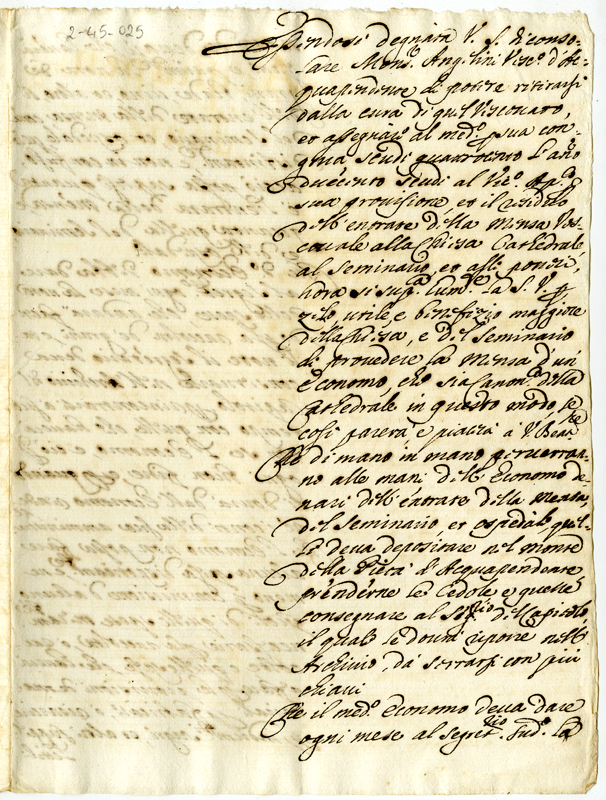 2-45-025
Essendosi degnata V. S. di conso-
lare Mons.r Angelini Vesc.o d'Ac-
quapendente di potere ritirarsi
dalla cura di quel Vescovato,
et assegnato al med.o p sua con-
grua scudi quattrocento l'anno
ducento scudi al Vic.o Ap.co p
sua provisione, et il residuo
dell'entrate della Mensa Ves-
covale alla Chiesa Cathedrale
al Seminario, et alli poveri,
hora si sup.ca hum.te la S. V. p
zelo, utile e benefizio maggiore
della Chiesa, e del Seminario
di provedere la Mensa d'un
Economo, che sia Canon.co della
Cathedrale in questo modo, se
così parerà e piacerà a V. Beat.ne
Che di mano in mano perverran-
no alle mani dell'Economo de-
nari dell'entrate della mensa,
del Seminario, et ospedale, quel-
lo deva depositare nel monte
della Pietà d'Acquapendente
prenderne le Cedole e quelle
consegnare al Seg.rio del Capitolo,
il quale le dovrà riporre nell'
Archivio, da serrarsi con più
chiavi
Che il med.o Economo deva dare
ogni mese al Segret.rio sud.o la